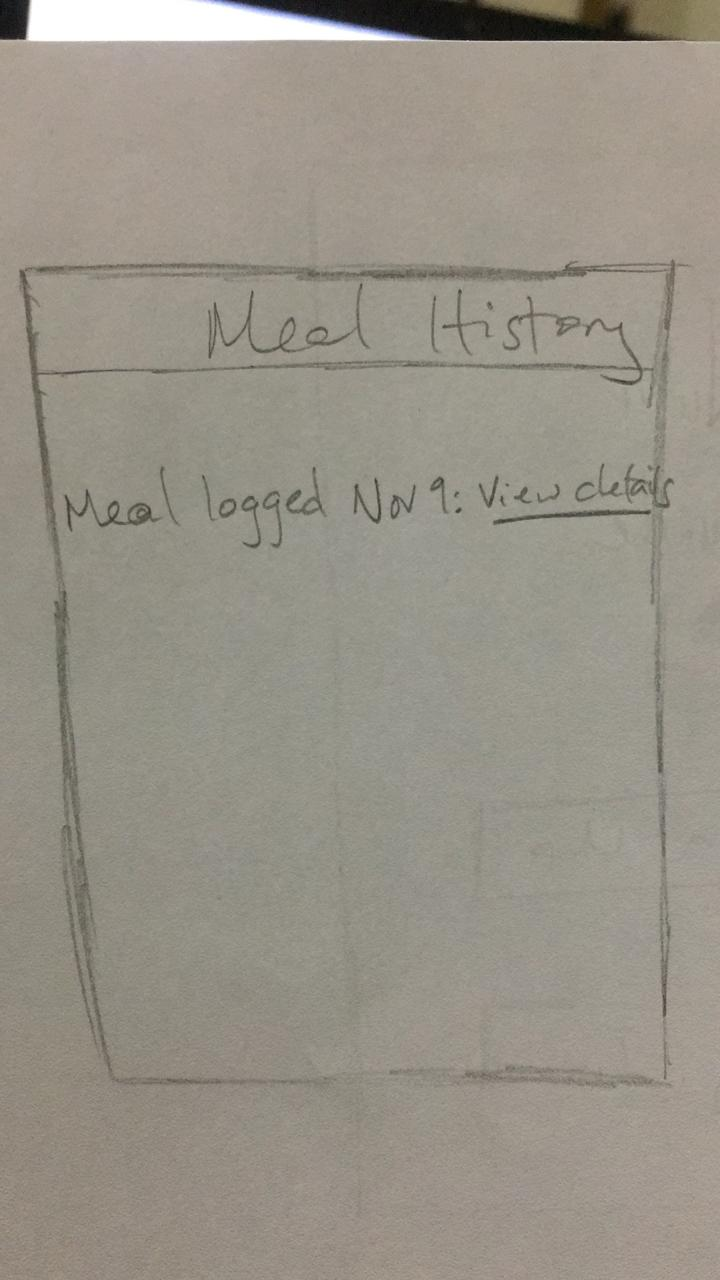 Meal History
Meal logged Nov 9: View details